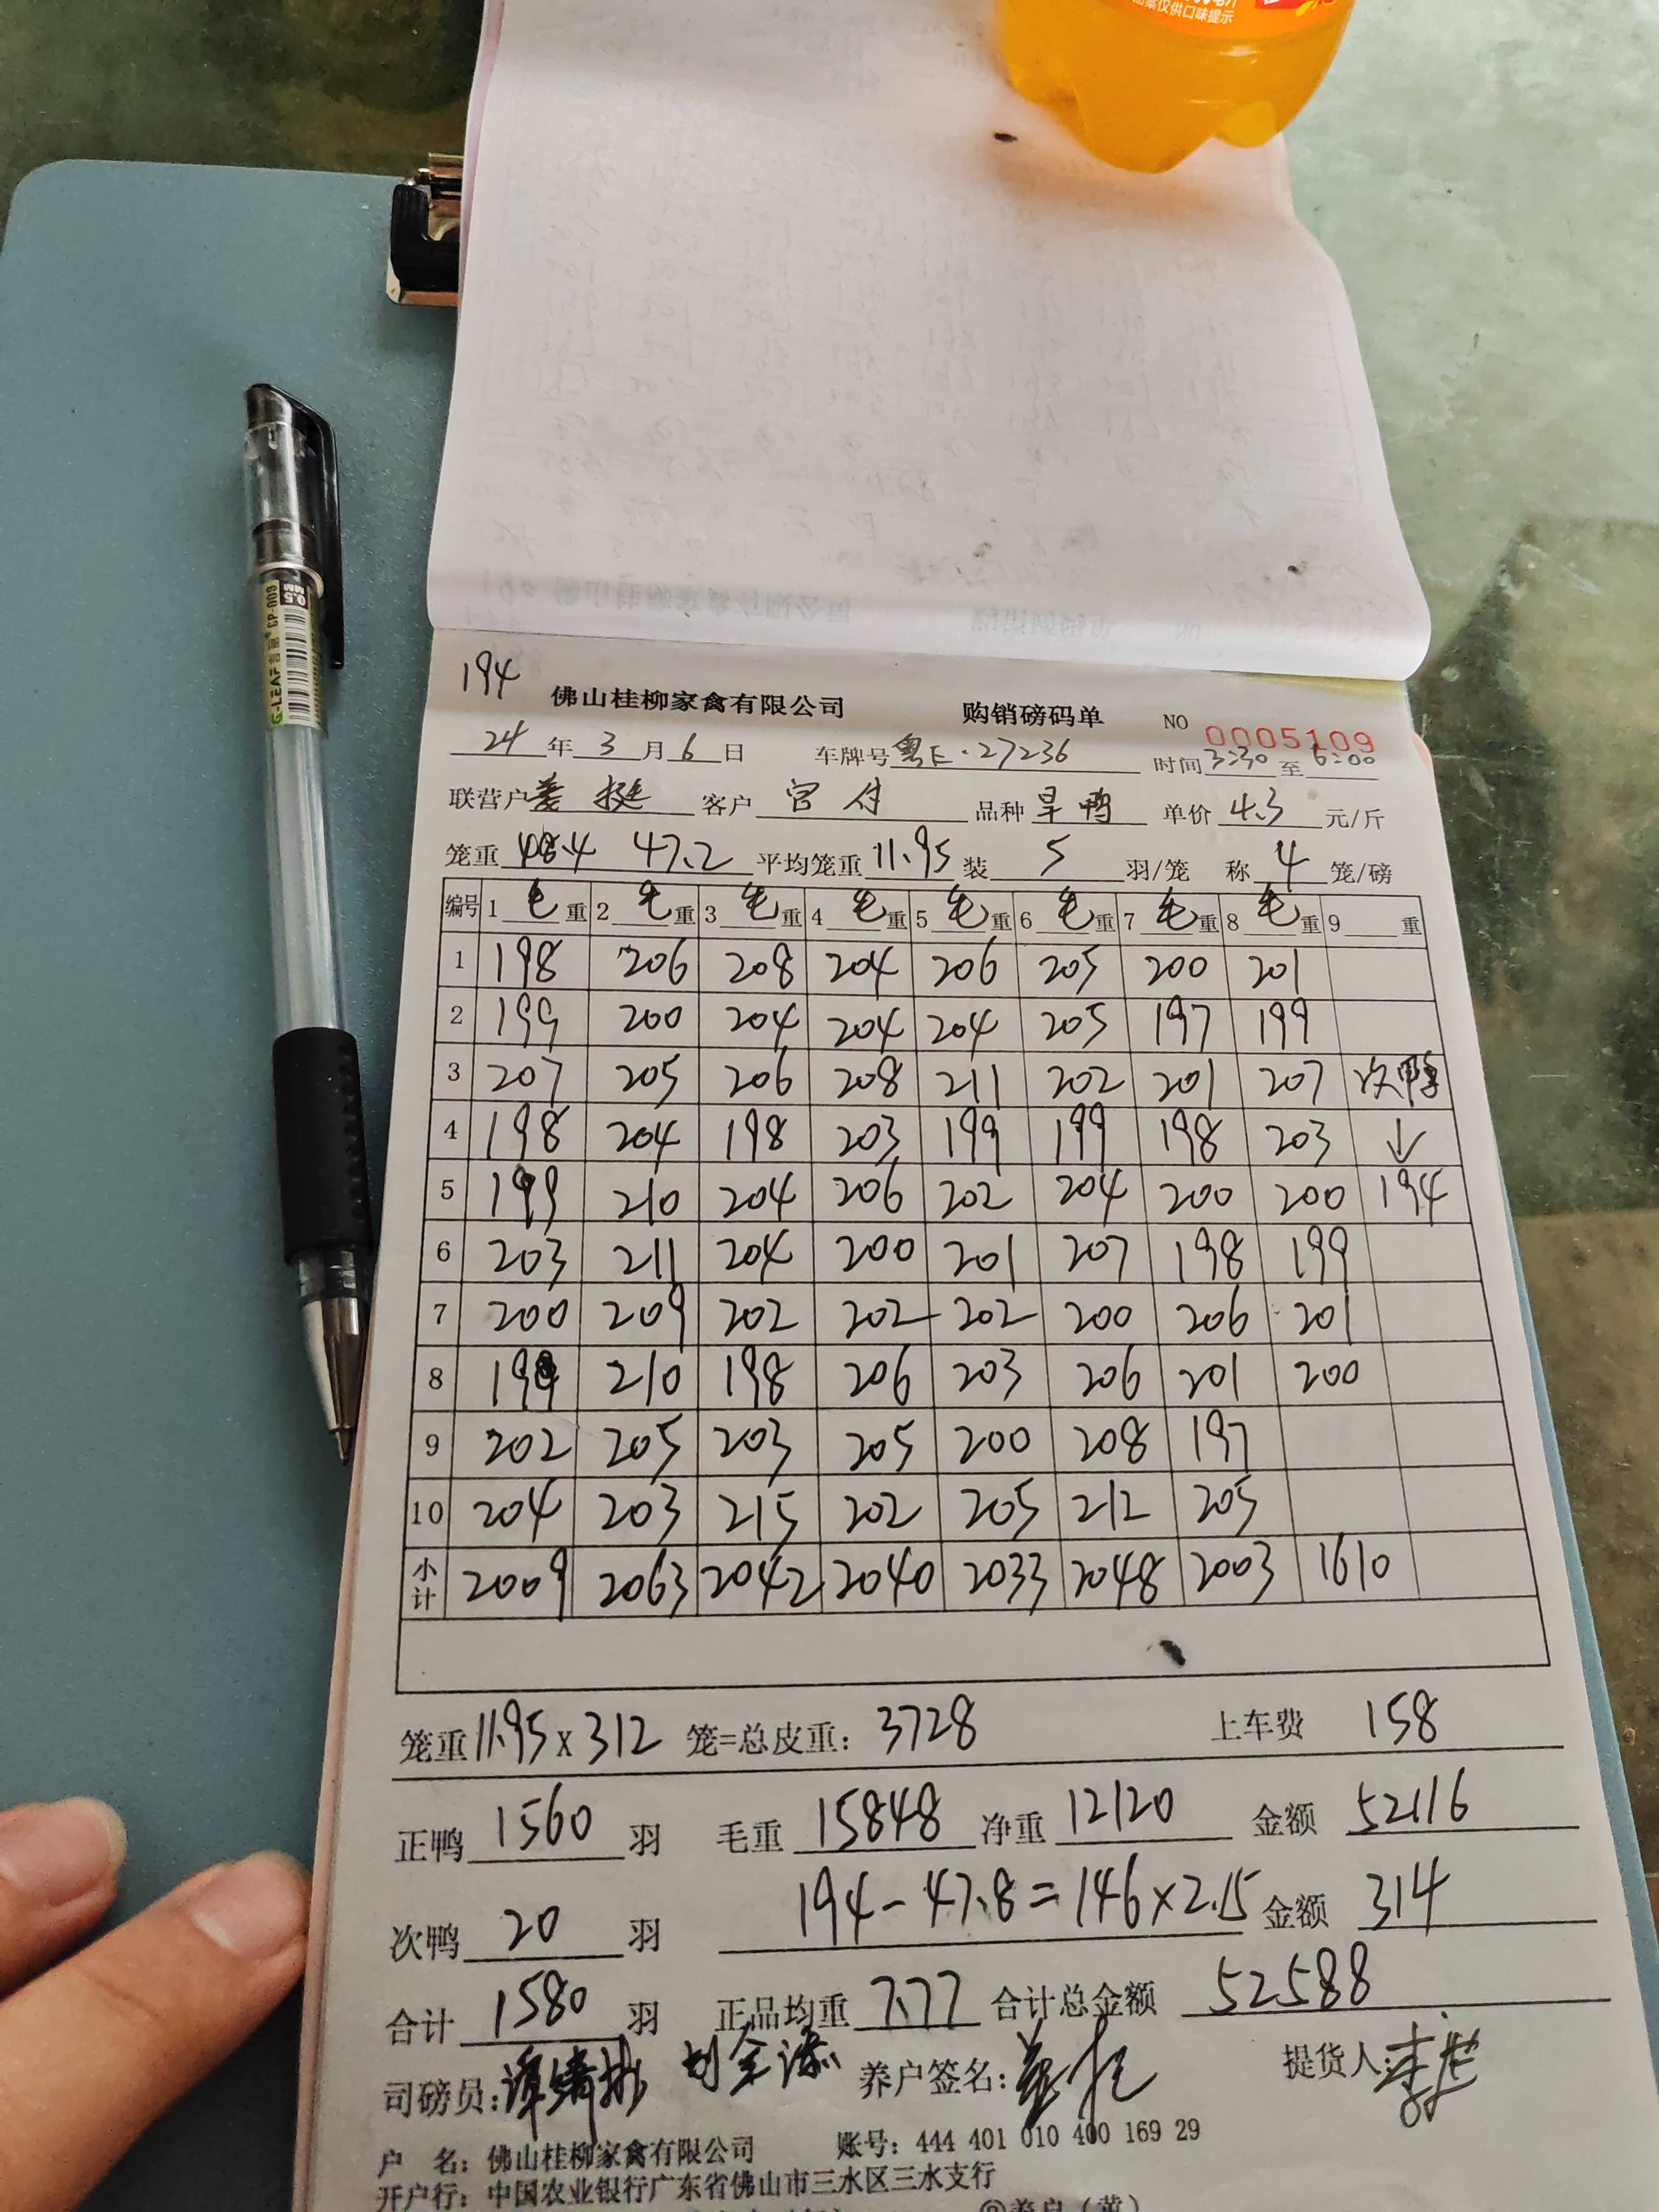 品仅供口味提示
0.5 MM
G-LEAF GP-009
194
佛山桂柳家禽有限公司 购销磅码单 NO 0005109
24 年 3 月 6 日 车牌号 粤E·27236 时间 3:30 至 6:00
联营户 姜挺 客户 宫付 品种 旱鸭 单价 4.3 元/斤
笼重 48.4 47.2 平均笼重 11.95 装 5 羽/笼 称 4 笼/磅
编号 1 毛 重 2 毛 重 3 毛 重 4 毛 重 5 毛 重 6 毛 重 7 毛 重 8 毛 重 9 重
1 198 206 208 204 206 205 200 201
2 199 200 204 204 204 205 197 199
3 207 205 206 208 211 202 201 207 次鸭
4 198 204 198 203 199 199 198 203 ↓
5 199 210 204 206 202 204 200 200 194
6 203 211 204 200 201 207 198 199
7 200 209 202 202 202 200 206 201
8 199 210 198 206 203 206 201 200
9 202 205 203 205 200 208 197
10 204 203 215 202 205 212 205
小计 2009 2063 2042 2040 2033 2048 2003 1610
笼重 11.95 x 312 笼=总皮重: 3728 上车费 158
正鸭 1560 羽 毛重 15848 净重 12120 金额 52116
次鸭 20 羽 194-47.8=146×2.15 金额 314
合计 1580 羽 正品均重 7.77 合计总金额 52588
司磅员: 养户签名: 提货人:
户 名: 佛山桂柳家禽有限公司 账号: 444 401 010 400 169 29
开户行: 中国农业银行广东省佛山市三水区三水支行
养户(黄)